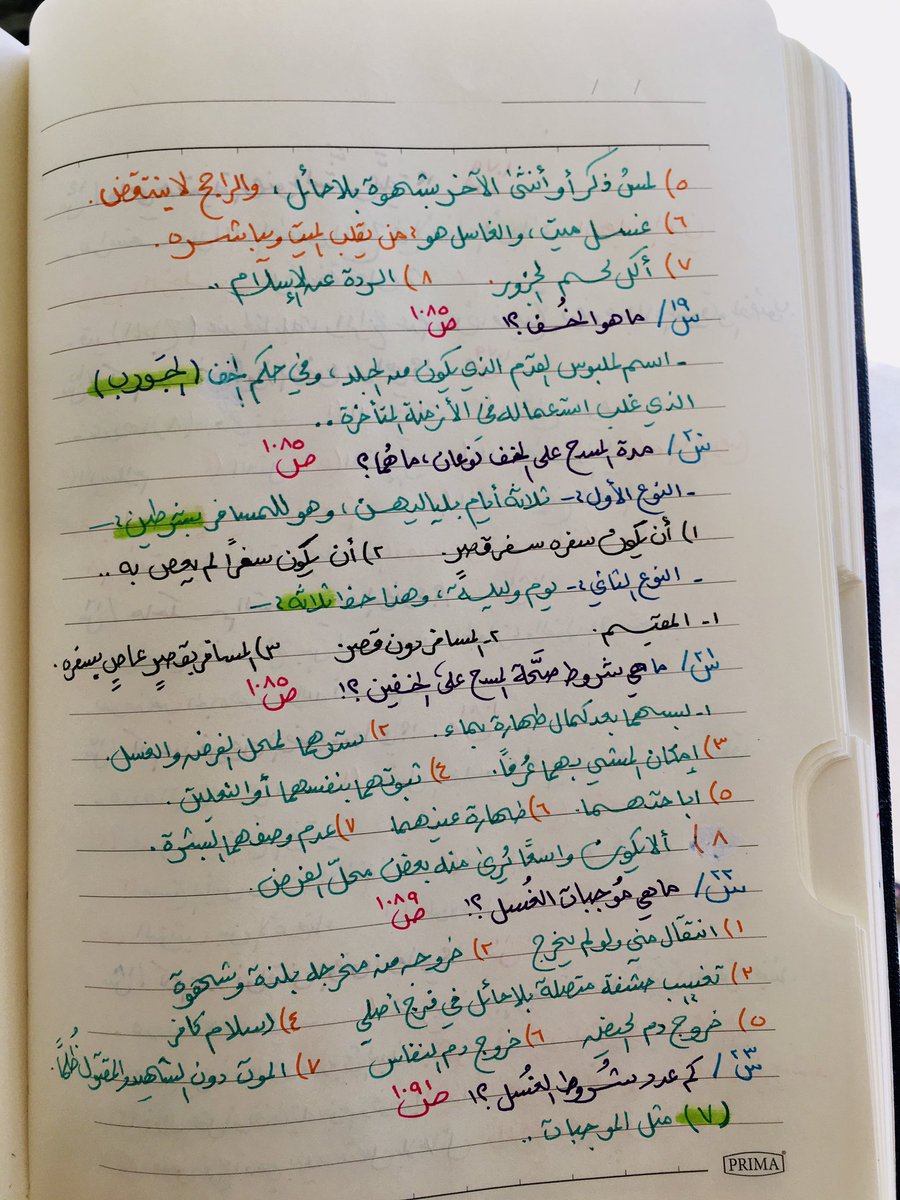 / /
٥) لمسُ ذكر أو أنثىٰ الآخر بشهوة بلا حائل، والراجح لا ينتقض.
٦) غسل ميت، والغاسل هو: من يقلب الميت ويباشره.
٧) أكل لحم الجزور. ٨) الردة عن الإسلام ..
س١٩/ ما هو الخُف؟! ص١٠٨٥
- اسم لملبوس القدم الذي يكون من الجلد، وفي حكم الخف (الجَورب)
الذي غلب استعماله في الأزمنة المتأخرة ..
س٢٠/ مدة المسح على الخف نوعان، ما هُما؟ ص١٠٨٥
- النوع الأول:- ثلاثة أيام بلياليهن، وهو للمسافر بشرطين:-
١) أن يكون سفره سفر قصر. ٢) أن يكون سفرًا لم يعص به ..
- النوع الثاني:- يوم وليلة، وهنا حق ثلاثة:-
١- المقيم. ٢- المسافر دون قصر. ٣) المسافر بقصرٍ عاصٍ بسفره.
س٢١/ ما هي شروط صحَّة المسح علىٰ الخفين؟! ص١٠٨٥
١- لبسهما بعد كمال طهارة بماء. ٢) سترهما لمحل الفرض والغسل.
٣) إمكان المشي بهما عُرفًا. ٤) ثبوتهما بنفسهما أو النعلين.
٥) اباحتهما. ٦) طهارة عينهما ٧) عدم وصفهما البشرة.
٨) ألا يكون واسعًا يُرىٰ منه بعض محلّ الفرض.
س٢٢/ ما هي مُوجبات الغُسل؟! ص١٠٨٩
١) انتقال مني ولو لم يخرج ٢) خروجه من مخرجه بلذة وشهوة
٣) تغييب حشفة متصلة بلا حائل في فرج أصلي ٤) إسلام كافر
٥) خروج دم الحيض ٦) خروج دم النفاس ٧) الموت دون الشهيد والمقتول ظُلمًا.
س٢٣/ كم عدد شُروط الغُسل؟! ص١٠٩١
(٧) مثل الموجبات ..
PRIMA